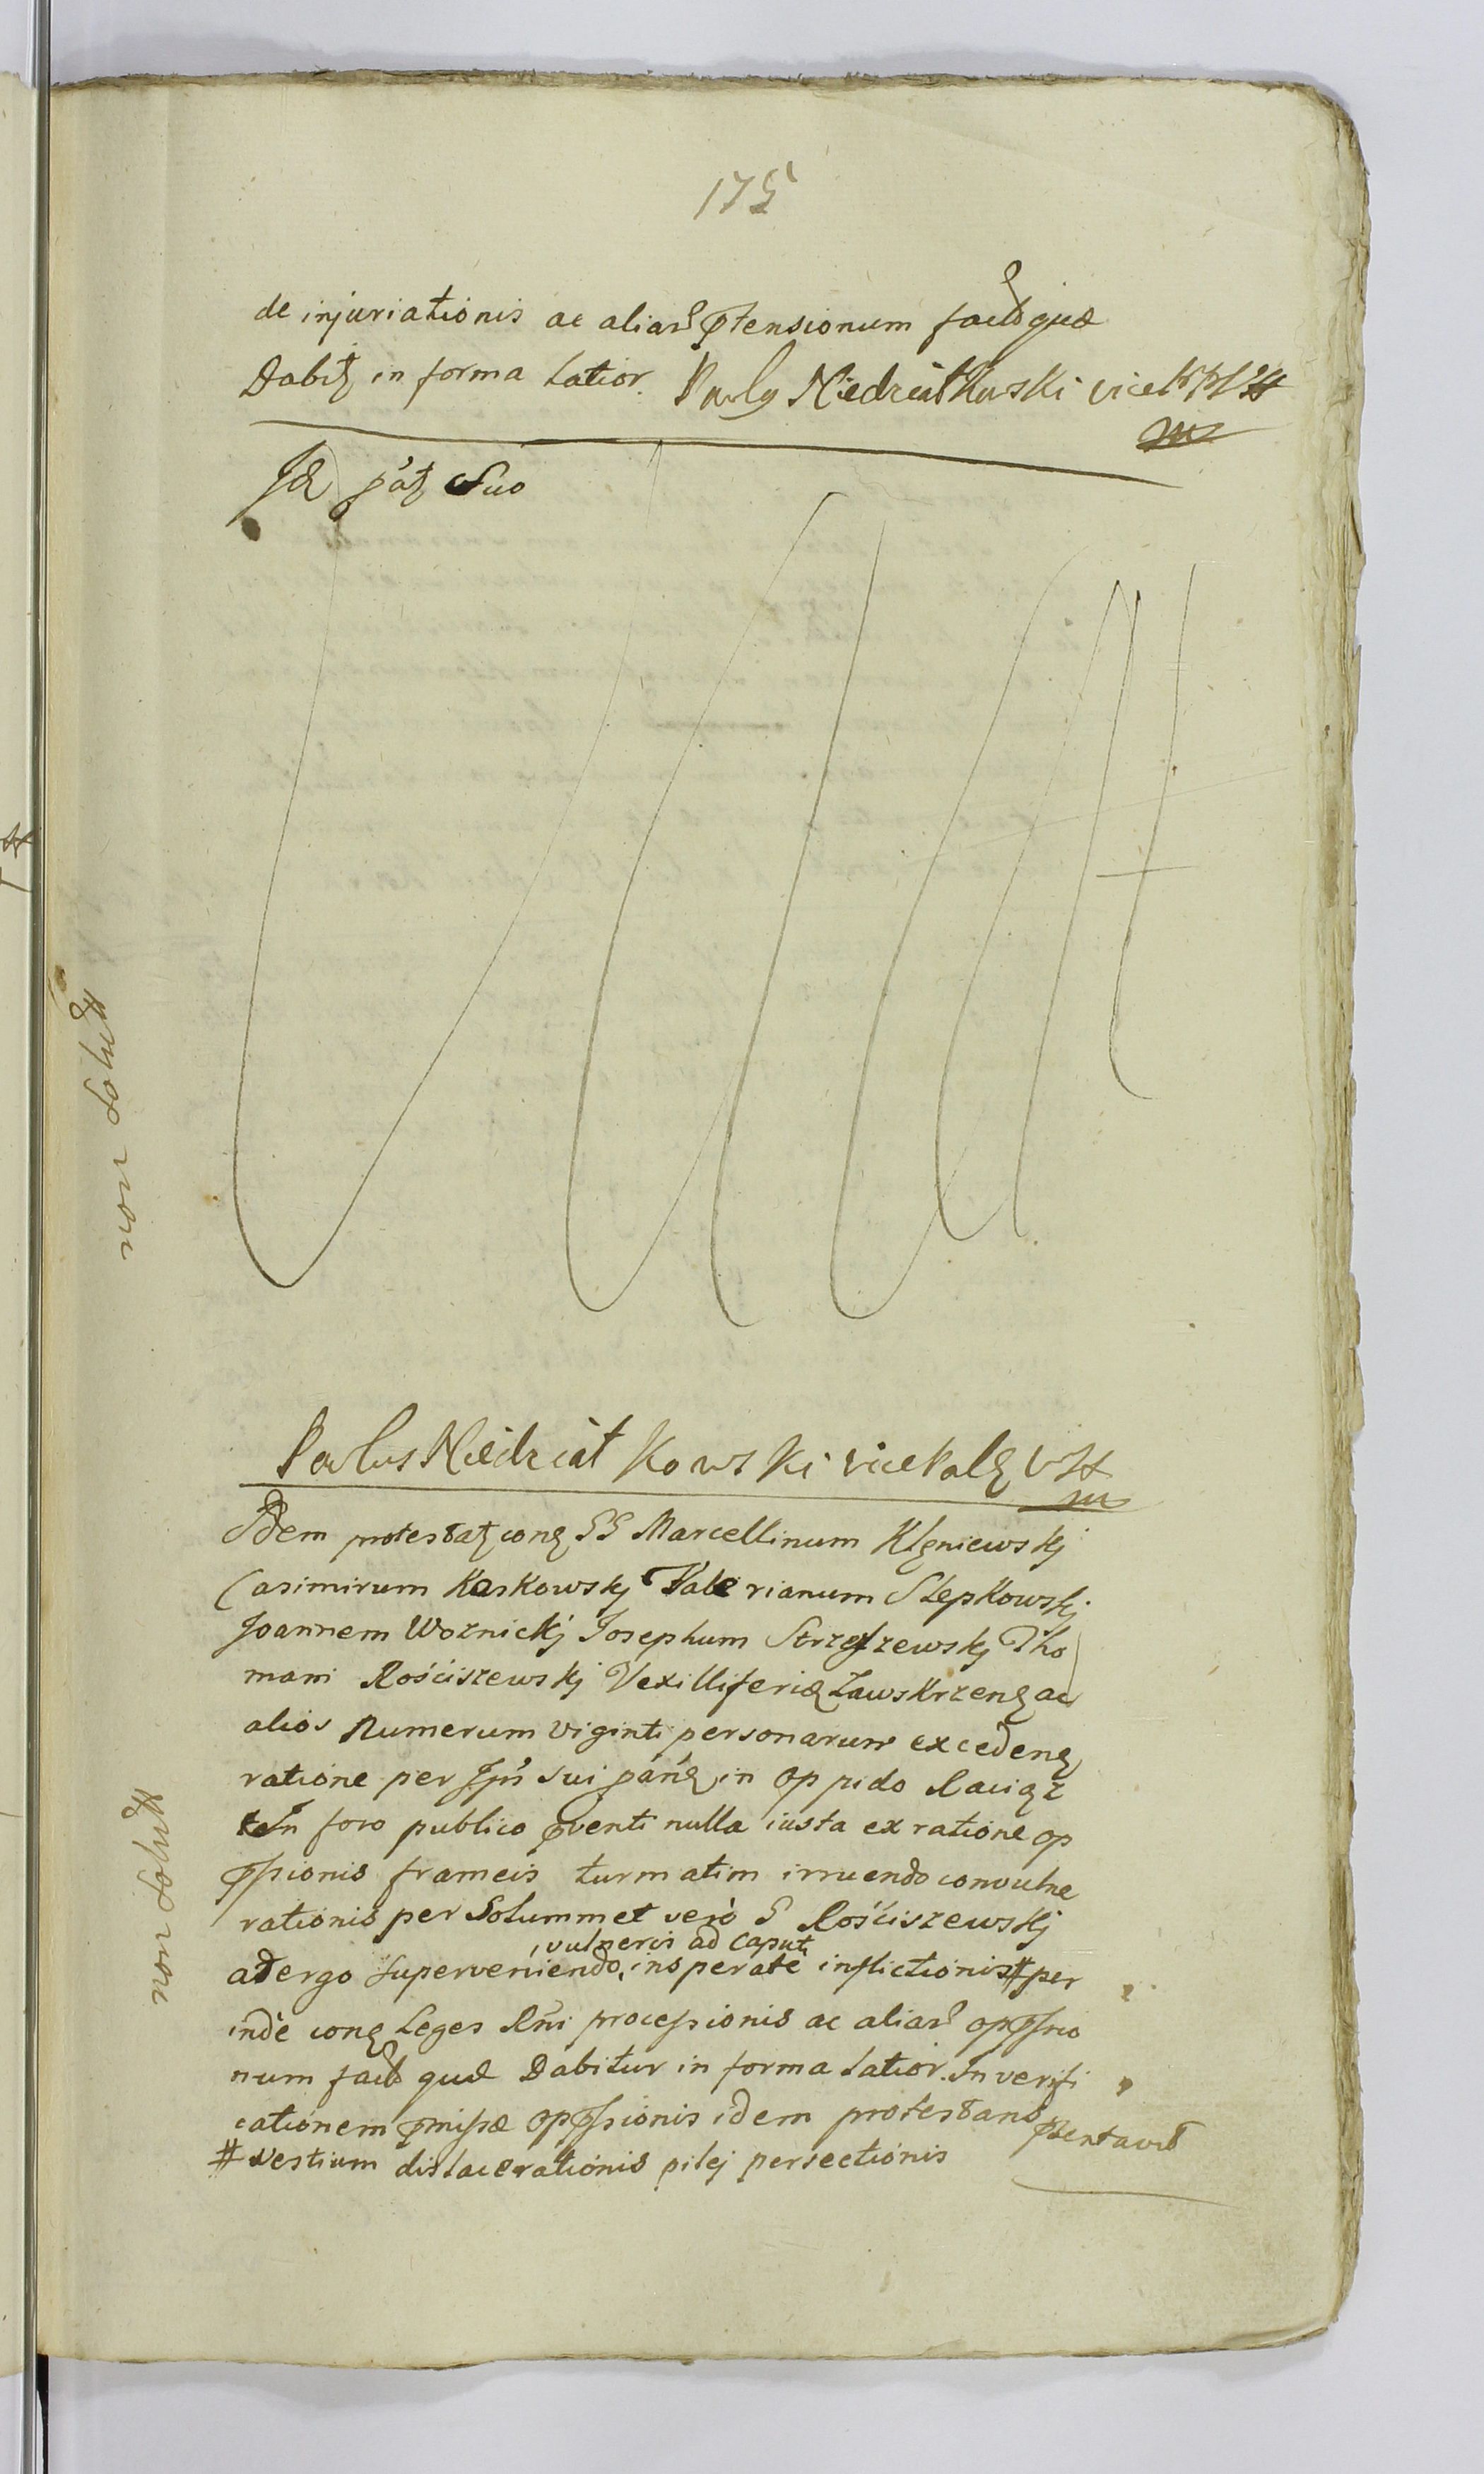 175
de injuriationis ac aliar ptensionum factoque
Dabit in forma latior. Paulus Niedziałkowski vice
Id
Suo
non solut
Paulus Niedziałkowski vice Pal V H
m
Idem protestat con GG Marcellinum Klęniewskj
Casimirum Kaskowskj Valerianum Slepkowskj
Joannem Woznickj Josephum Strzeszewskj Tho
mam Rościszewskj Vexilliferid Zawskrzen ac
alios Numerum viginti personarum exceden
ratione per Ipn sui pân in oppido Raciąz
In foro publico pventi nulla iusta ex ratione op
pssionis frameis turmatim irruendo convulne
rationis per Solummet verò G Rościszewskj
adergo superveniendo, vulneris ad Caput insperatè inflictionis # per
indè con Leges Rni processionis ac aliar oppssio
num facto quæ Dabitur in forma latior. In verifi
cationem pmissæ oppssionis idem protestans psentavit
# vestium dislacerationis pilej persectionis
non solut